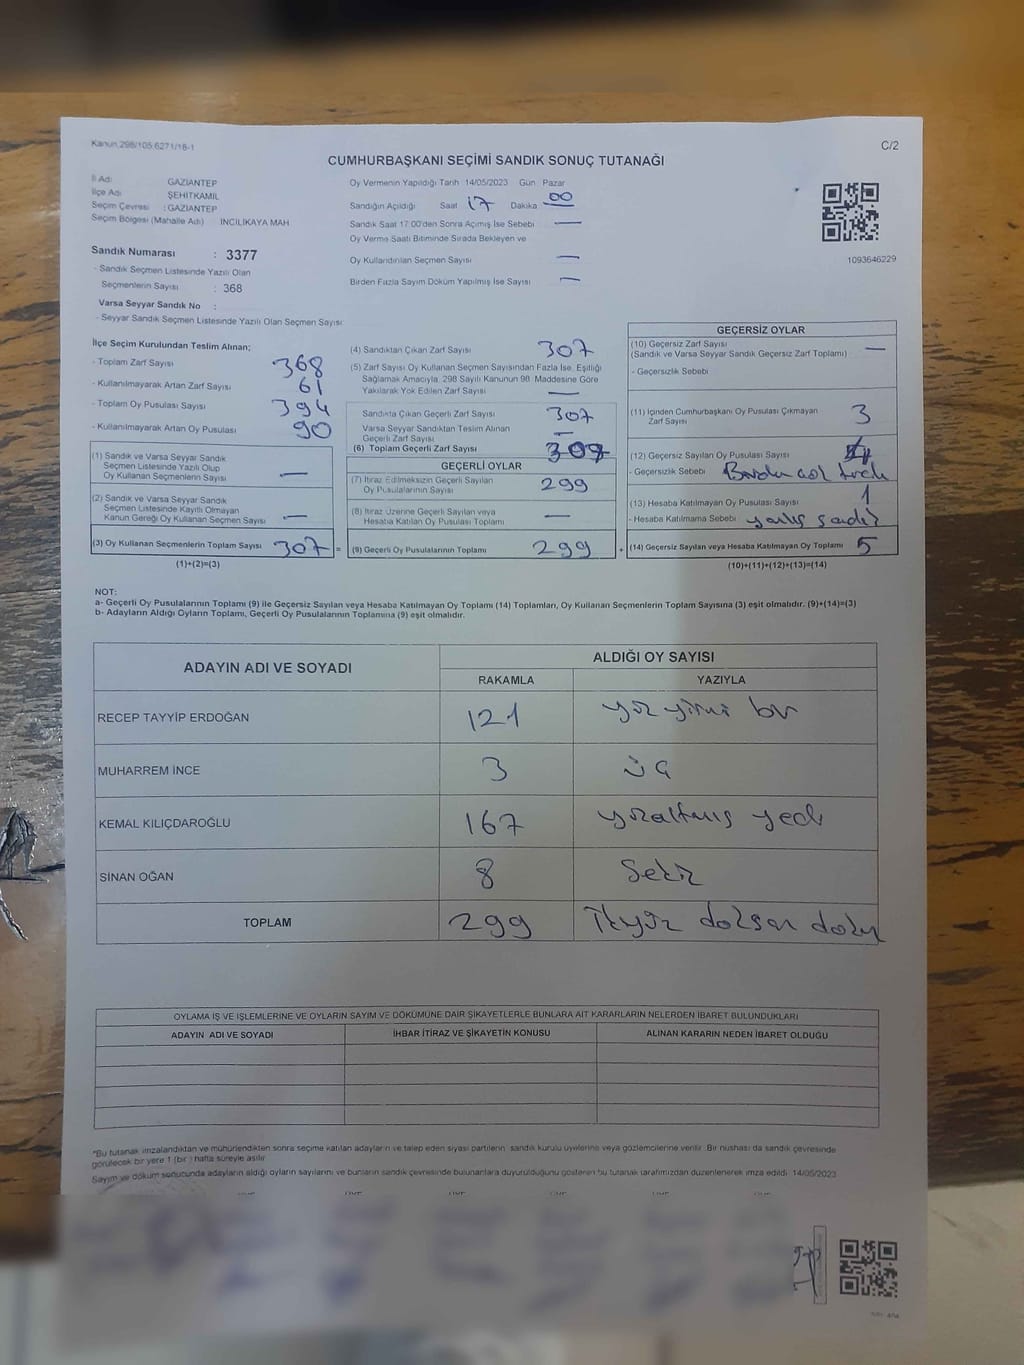 Kanun 298/105 6271/18-1
C/2
CUMHURBAŞKANI SEÇİMİ SANDIK SONUÇ TUTANAĞI
İl Adı GAZİANTEP
İlçe Adı ŞEHİTKAMİL
Seçim Çevresi : GAZİANTEP
Seçim Bölgesi (Mahalle Adı) İNCİLİKAYA MAH.
Sandık Numarası : 3377
- Sandık Seçmen Listesinde Yazılı Olan
Seçmenlerin Sayısı : 368
Varsa Seyyar Sandık No :
- Seyyar Sandık Seçmen Listesinde Yazılı Olan Seçmen Sayısı:
Oy Vermenin Yapıldığı Tarih 14/05/2023 Gün Pazar
Sandığın Açıldığı Saat 17 Dakika 00
Sandık Saat 17:00'den Sonra Açılmış İse Sebebi —
Oy Verme Saati Bitiminde Sırada Bekleyen ve
Oy Kullandırılan Seçmen Sayısı —
Birden Fazla Sayım Döküm Yapılmış İse Sayısı —
1093646229
İlçe Seçim Kurulundan Teslim Alınan;
- Toplam Zarf Sayısı 368
- Kullanılmayarak Artan Zarf Sayısı 61
- Toplam Oy Pusulası Sayısı 394
- Kullanılmayarak Artan Oy Pusulası 90
(1) Sandık ve Varsa Seyyar Sandık
Seçmen Listesinde Yazılı Olup
Oy Kullanan Seçmenlerin Sayısı —
(2) Sandık ve Varsa Seyyar Sandık
Seçmen Listesinde Kayıtlı Olmayan
Kanun Gereği Oy Kullanan Seçmen Sayısı —
(3) Oy Kullanan Seçmenlerin Toplam Sayısı 307 =
(1)+(2)=(3)
(4) Sandıktan Çıkan Zarf Sayısı 307
(5) Zarf Sayısı Oy Kullanan Seçmen Sayısından Fazla İse, Eşitliği
Sağlamak Amacıyla, 298 Sayılı Kanunun 98. Maddesine Göre
Yakılarak Yok Edilen Zarf Sayısı —
Sandıkta Çıkan Geçerli Zarf Sayısı 307
Varsa Seyyar Sandıktan Teslim Alınan
Geçerli Zarf Sayısı —
(6) Toplam Geçerli Zarf Sayısı 307
GEÇERLİ OYLAR
(7) İtiraz Edilmeksizin Geçerli Sayılan
Oy Pusulalarının Sayısı 299
(8) İtiraz Üzerine Geçerli Sayılan veya
Hesaba Katılan Oy Pusulası Toplamı —
(9) Geçerli Oy Pusulalarının Toplamı 299 +
GEÇERSİZ OYLAR
(10) Geçersiz Zarf Sayısı —
(Sandık ve Varsa Seyyar Sandık Geçersiz Zarf Toplamı)
- Geçersizlik Sebebi
(11) İçinden Cumhurbaşkanı Oy Pusulası Çıkmayan
Zarf Sayısı 3
(12) Geçersiz Sayılan Oy Pusulası Sayısı
- Geçersizlik Sebebi
(13) Hesaba Katılmayan Oy Pusulası Sayısı 1
- Hesaba Katılmama Sebebi yanlış sandık
(14) Geçersiz Sayılan veya Hesaba Katılmayan Oy Toplamı 5
(10)+(11)+(12)+(13)=(14)
NOT:
a- Geçerli Oy Pusulalarının Toplamı (9) ile Geçersiz Sayılan veya Hesaba Katılmayan Oy Toplamı (14) Toplamları, Oy Kullanan Seçmenlerin Toplam Sayısına (3) eşit olmalıdır. (9)+(14)=(3)
b- Adayların Aldığı Oyların Toplamı, Geçerli Oy Pusulalarının Toplamına (9) eşit olmalıdır.
ADAYIN ADI VE SOYADI ALDIĞI OY SAYISI
RAKAMLA YAZIYLA
RECEP TAYYİP ERDOĞAN 121 yüz yirmi bir
MUHARREM İNCE 3 üç
KEMAL KILIÇDAROĞLU 167 yüzaltmış yedi
SİNAN OĞAN 8 Sekiz
TOPLAM 299 İkiyüz doksan dokuz
OYLAMA İŞ VE İŞLEMLERİNE VE OYLARIN SAYIM VE DÖKÜMÜNE DAİR ŞİKAYETLERLE BUNLARA AİT KARARLARIN NELERDEN İBARET BULUNDUKLARI
ADAYIN ADI VE SOYADI İHBAR İTİRAZ VE ŞİKAYETİN KONUSU ALINAN KARARIN NEDEN İBARET OLDUĞU
*Bu tutanak imzalandıktan ve mühürlendikten sonra seçime katılan adayların ve talep eden siyasi partilerin sandık kurulu üyelerine veya gözlemcilerine verilir. Bir nüshası da sandık çevresinde
görülecek bir yere 1 (bir) hafta süreyle asılır.
Sayım ve döküm sonucunda adayların aldığı oyların sayılarını ve bunların sandık çevresinde bulunanlara duyurulduğunu gösteren bu tutanak tarafımızdan düzenlenerek imza edildi. 14/05/2023